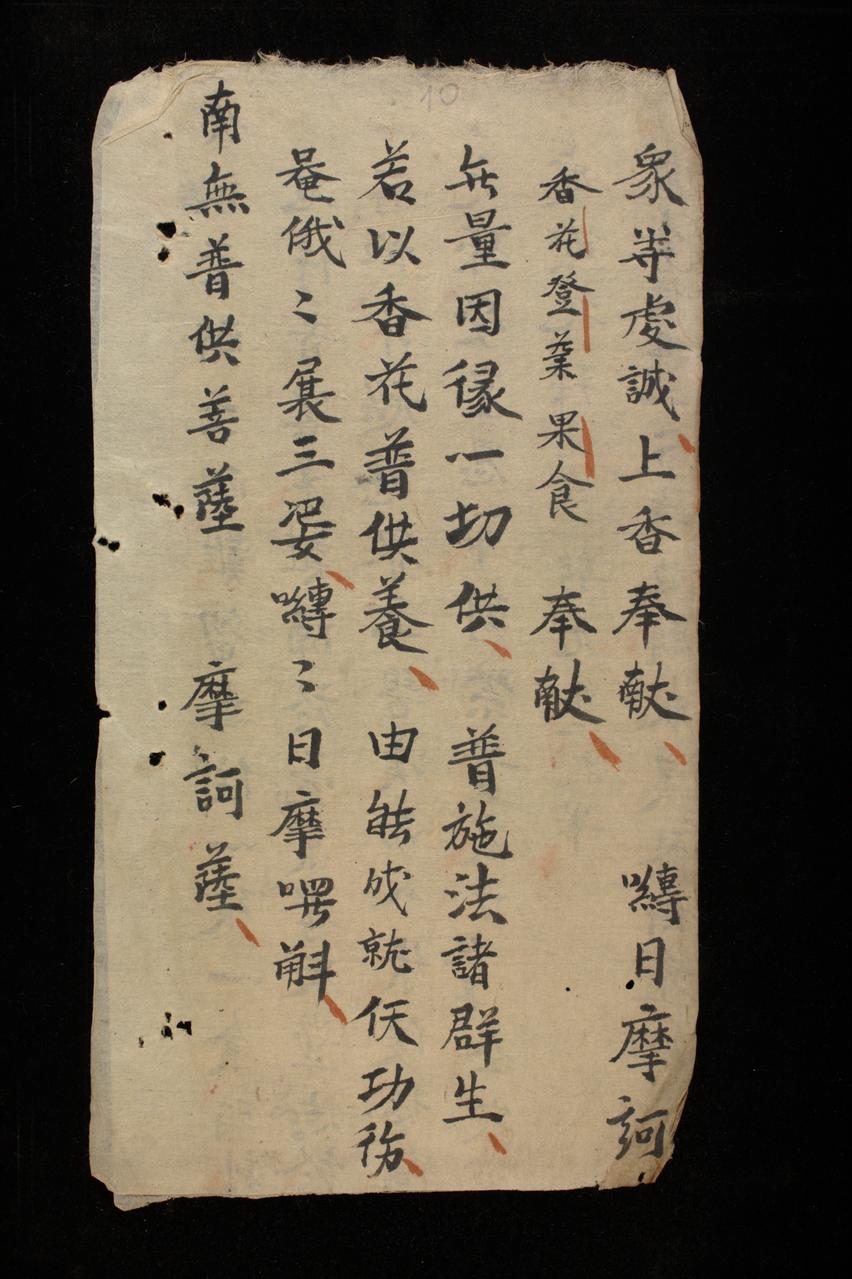 10
衆等虔誠上香奉献 囀日摩訶
香花登菓果食 奉献
無量因緣一切供 普施法諸群生
若以香花普供養 由能成就仸功
菴俄〻曩三婆囀〻日摩㖿斛
南無普供善薩 摩訶薩